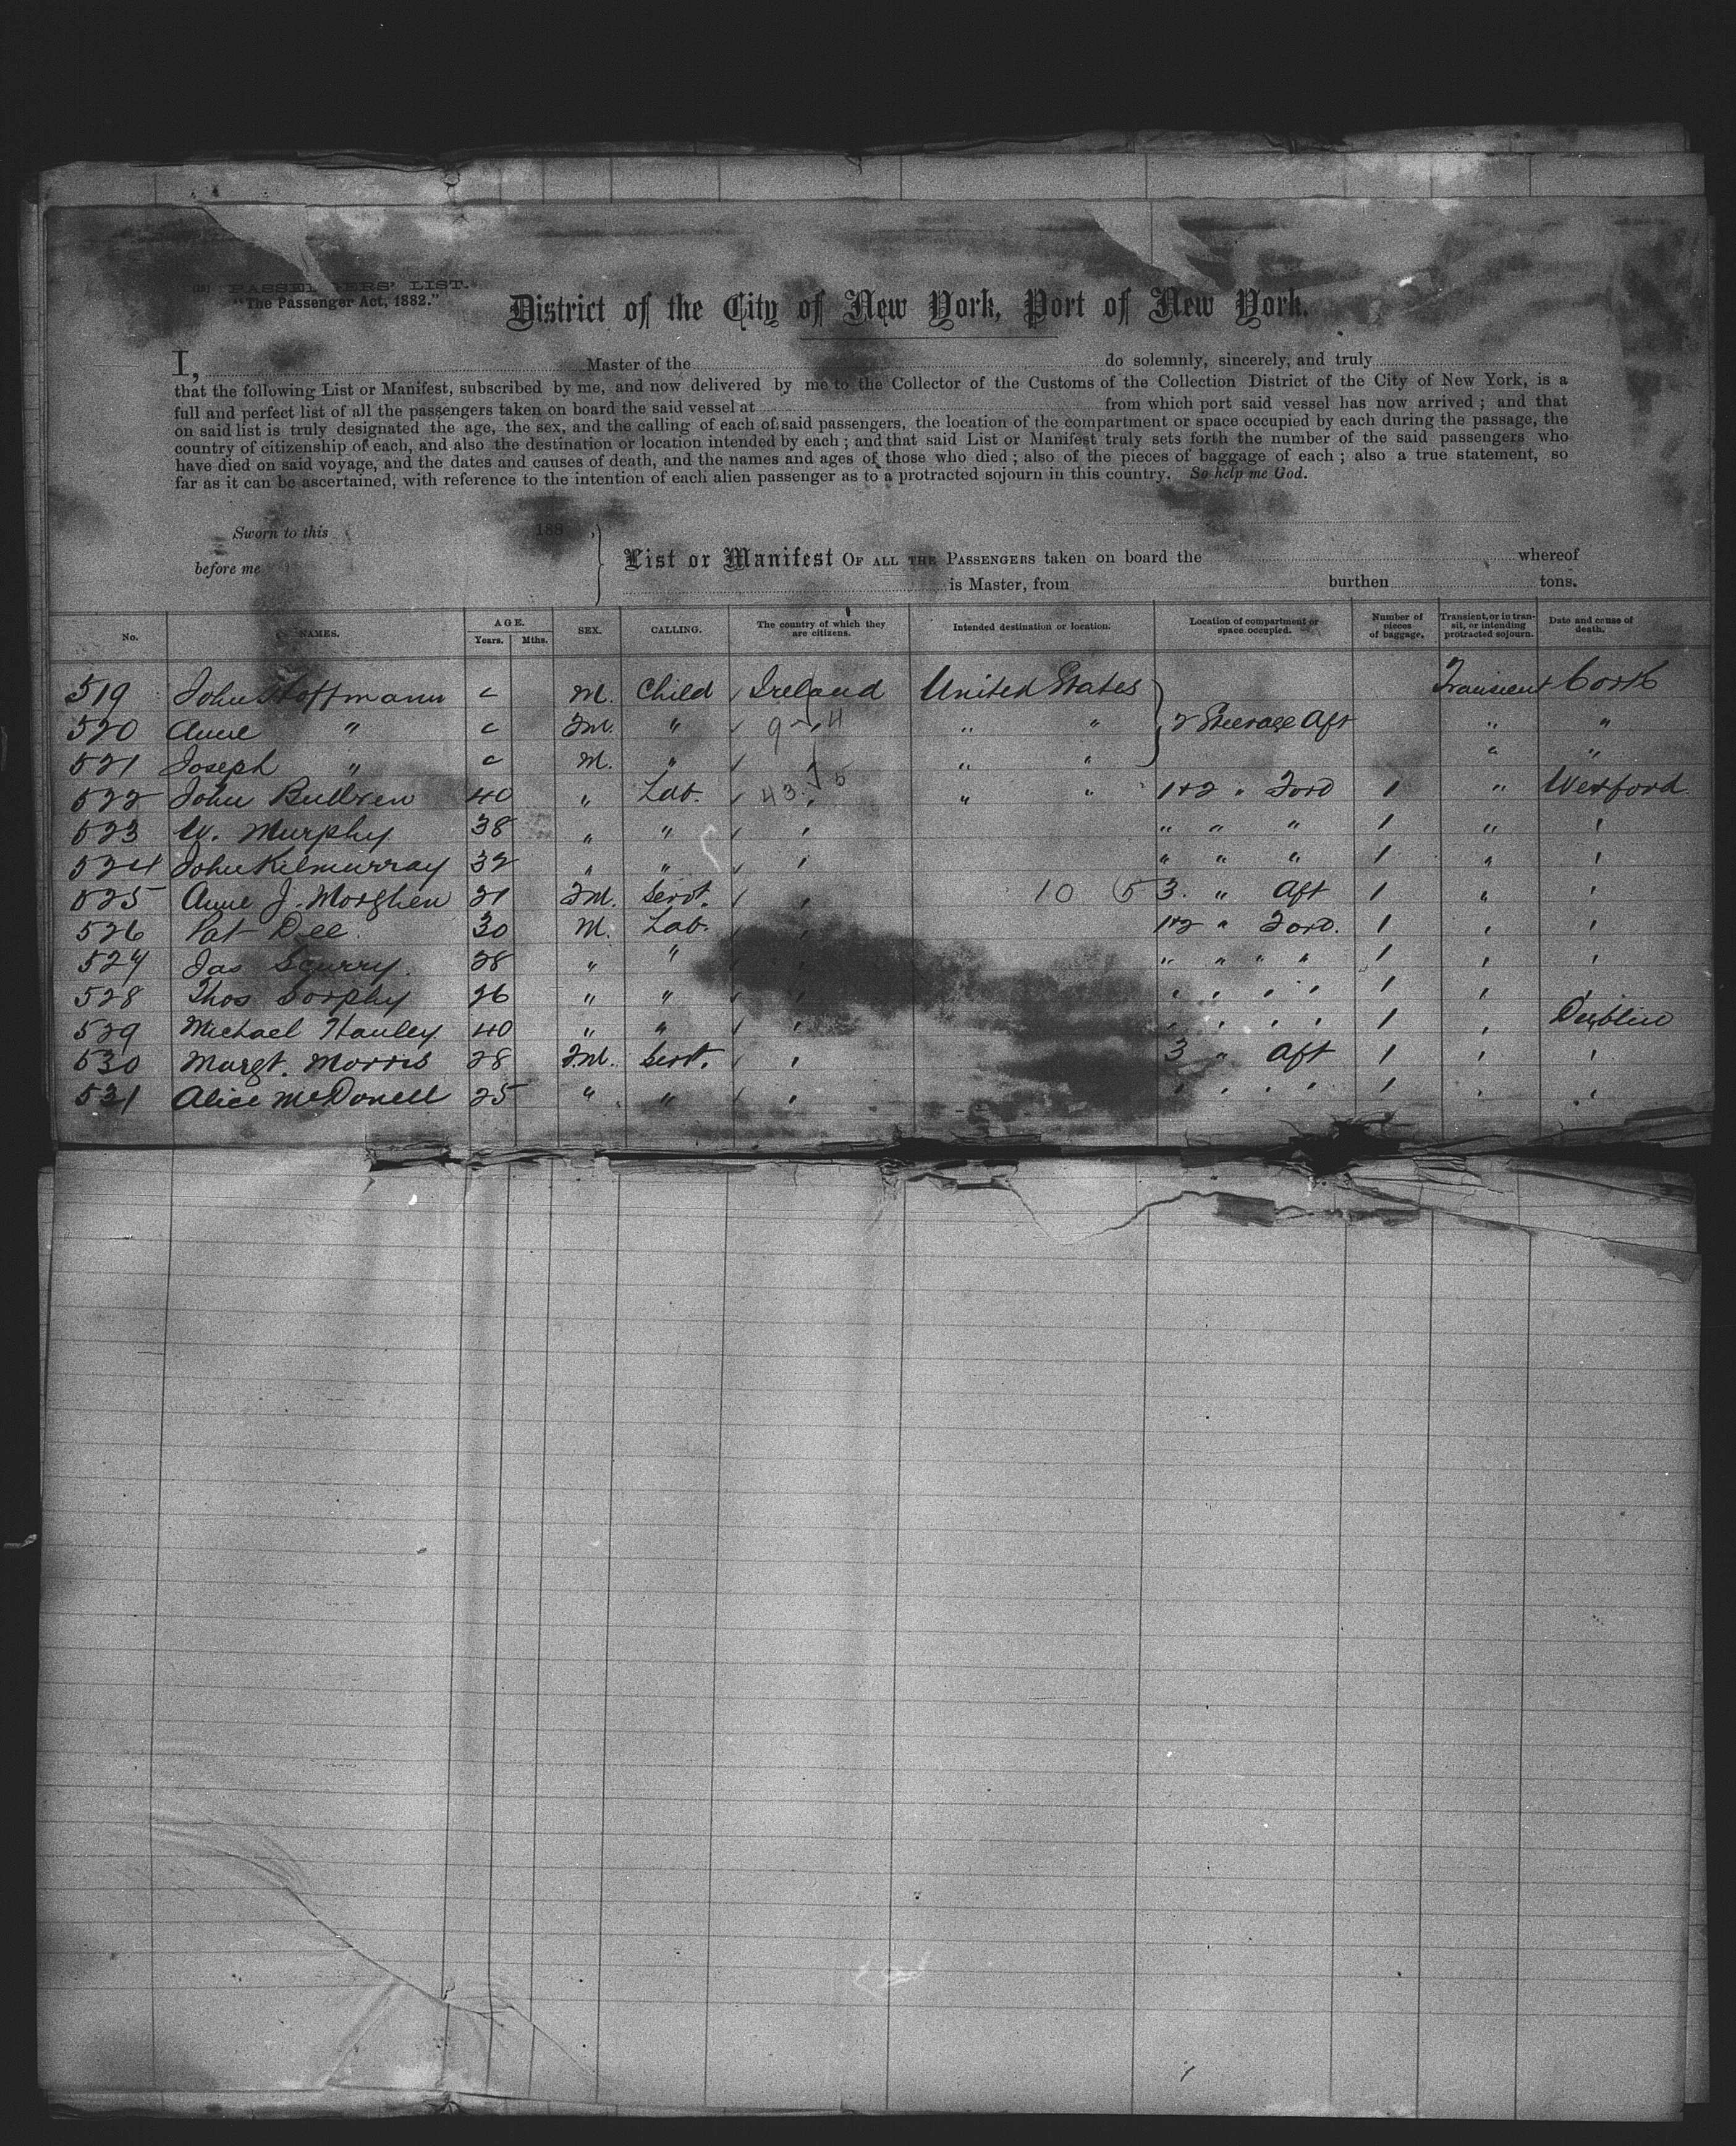 PASSENGERS' LIST.
"The Passenger Act, 1882."
District of the City of New York, Port of New York.
I, Master of the do solemnly, sincerely, and truly
that the following List or Manifest, subscribed by me, and now delivered by me to the Collector of the Customs of the Collection District of the City of New York, is a
full and perfect list of all the passengers taken on board the said vessel at from which port said vessel has now arrived; and that
on said list is truly designated the age, the sex, and the calling of each of said passengers, the location of the compartment or space occupied by each during the passage, the
country of citizenship of each, and also the destination or location intended by each; and that said List or Manifest truly sets forth the number of the said passengers who
have died on said voyage, and the dates and causes of death, and the names and ages of those who died; also of the pieces of baggage of each; also a true statement, so
far as it can be ascertained, with reference to the intention of each alien passenger as to a protracted sojourn in this country. So help me God.
Sworn to this 188
before me
List or Manifest OF ALL THE PASSENGERS taken on board the whereof
is Master, from burthen tons.
No. NAMES. AGE. Years. Mths. SEX. CALLING. The country of which they are citizens. Intended destination or location. Location of compartment or space occupied. Number of pieces of baggage. Transient, or in transit, or intending protracted sojourn. Date and cause of death.
519 John Hoffmann c M. Child Ireland United States Transient Cork
520 Anne " c Fm. " 9-4 " " 2 Steerage Aft " "
521 Joseph " c M. " " " " "
522 John 40 " Lab. 43 5 " " 1+2 " Ford 1 " Wexford
523 W. Murphy 38 " " ' " " " 1 " '
524 John Kilmurray 32 " " ' " " " 1 " '
525 Anne J. 21 Fm. Servt. ' 10 5 3. " Aft 1 " '
526 Pat Dee 30 M. Lab. ' 1+2 " Ford. 1 ' '
527 Jas Scurry 28 " " ' " " " " 1 ' '
528 Thos Dorphy 26 " " ' ' ' ' ' 1 ' '
529 Michael Hanley 40 " " ' ' ' ' ' 1 ' Dublin
530 Margt. Morris 28 Fm. Servt. ' 3 " Aft 1 ' '
531 Alice McDonell 25 " " ' ' ' ' ' 1 ' '